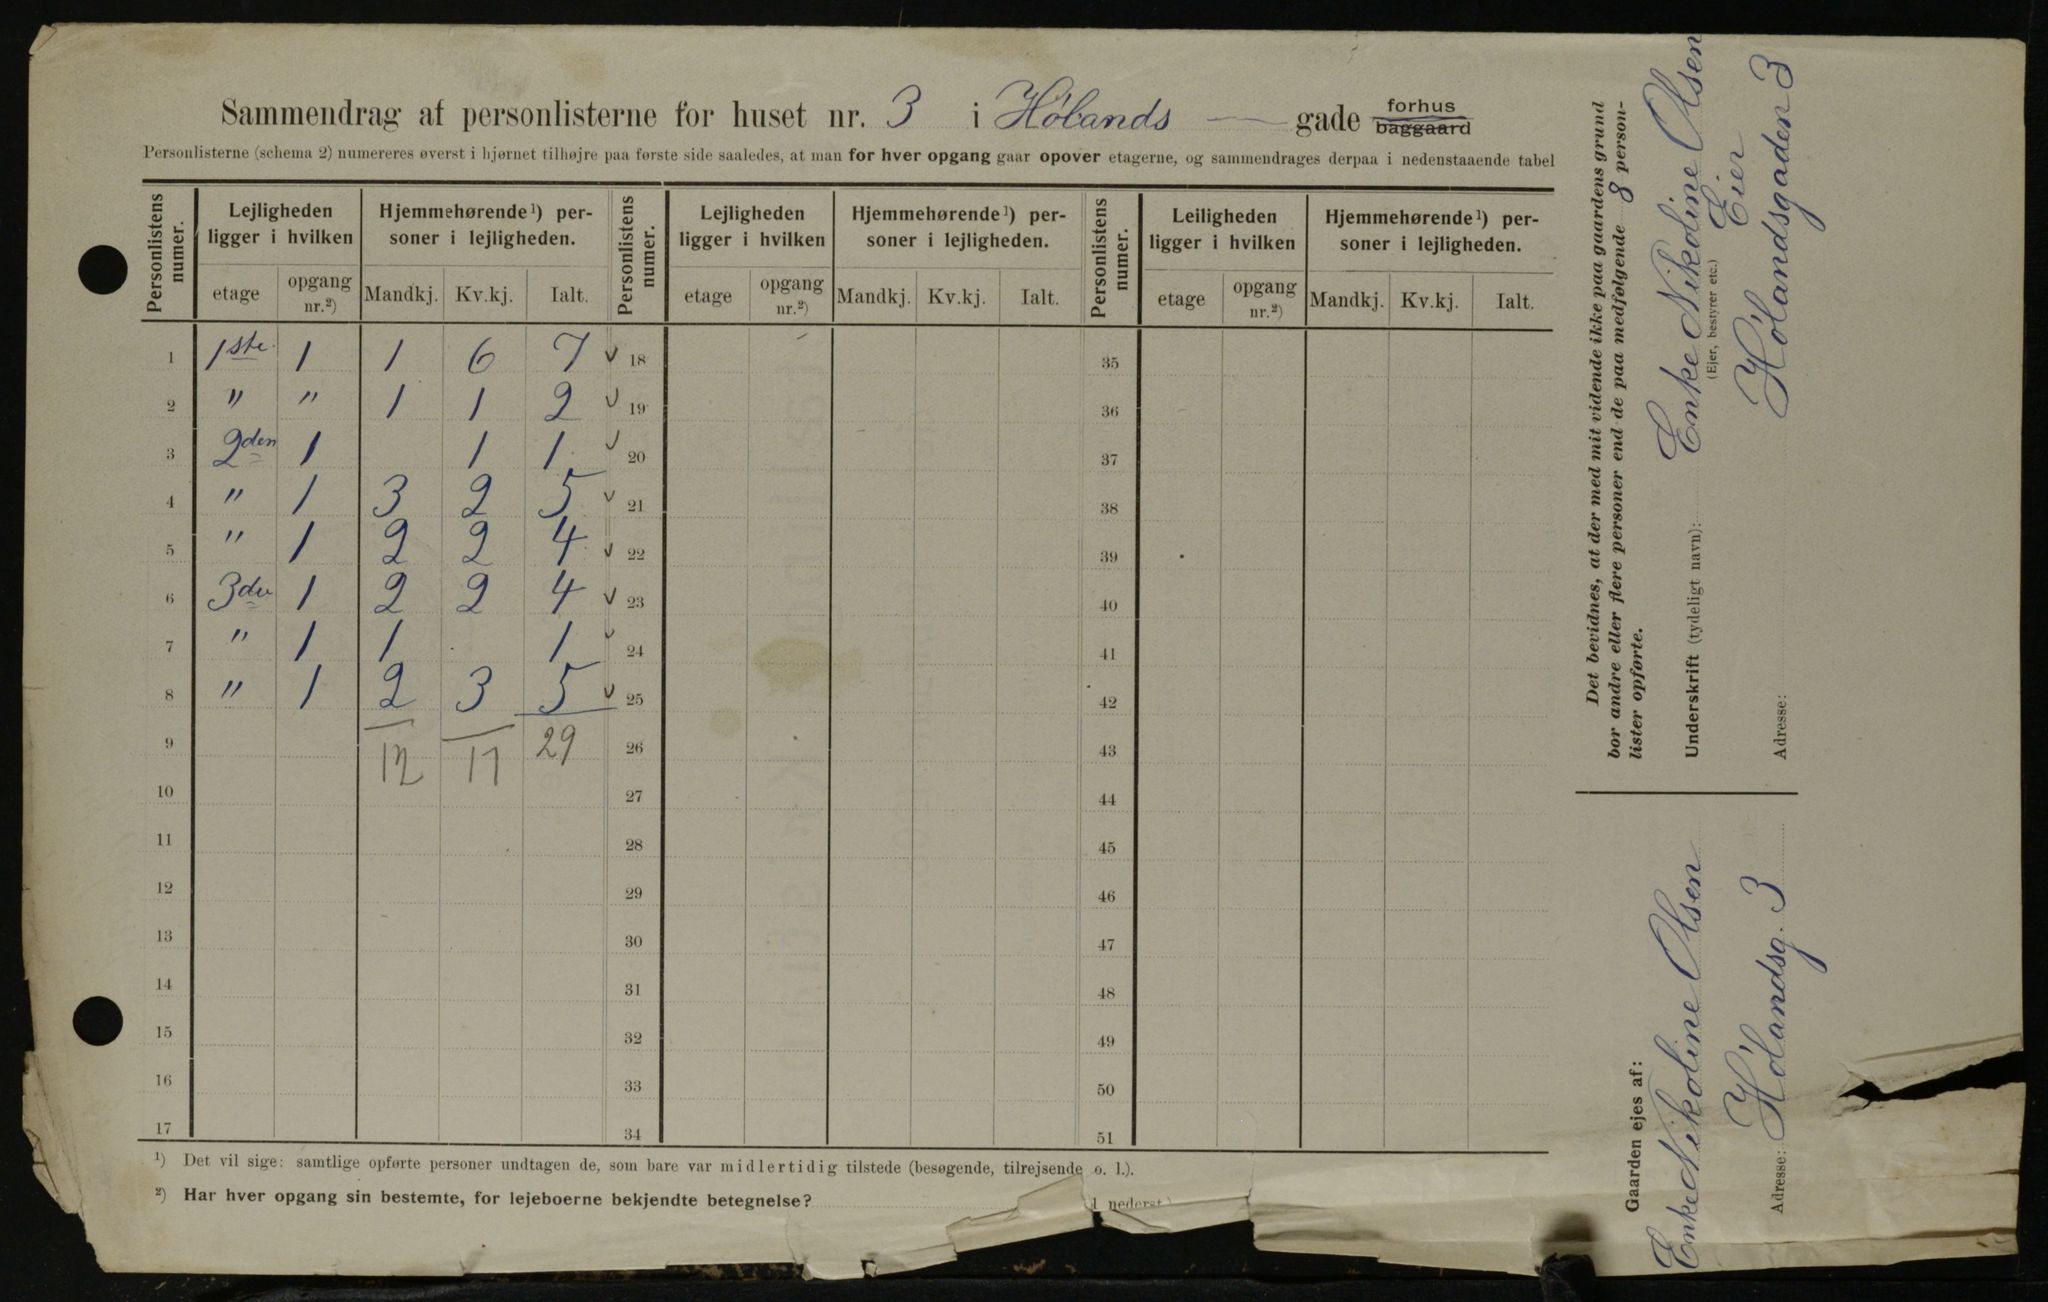 Sammendrag af personlisterne for huset nr. 3 i Hölands — gade forhus baggaard
Personlisterne (schema 2) numereres øverst i hjørnet tilhøjre paa første side saaledes, at man for hver opgang gaar opover etagerne, og sammendrages derpaa i nedenstaaende tabel
Personlistens numer. Lejligheden ligger i hvilken Hjemmehørende¹) personer i lejligheden. Personlistens numer. Lejligheden ligger i hvilken Hjemmehørende¹) personer i lejligheden. Personlistens numer. Leiligheden ligger i hvilken Hjemmehørende¹) personer i lejligheden.
etage opgang nr.²) Mandkj. Kv.kj. Ialt. etage opgang nr.²) Mandkj. Kv.kj. Ialt. etage opgang nr.²) Mandkj. Kv.kj. Ialt.
1 1ste 1 1 6 7 ✓ 18 35
2 " " 1 1 2 ✓ 19 36
3 2den 1 1 1 ✓ 20 37
4 " 1 3 2 5 ✓ 21 38
5 " 1 2 2 4 ✓ 22 39
6 3die 1 2 2 4 ✓ 23 40
7 " 1 1 1 ✓ 24 41
8 " 1 2 3 5 ✓ 25 42
9 12 17 29 26 43
10 27 44
11 28 45
12 29 46
13 30 47
14 31 48
15 32 49
16 33 50
17 34 51
¹) Det vil sige: samtlige opførte personer undtagen de, som bare var midlertidig tilstede (besøgende, tilrejsende o. l.).
²) Har hver opgang sin bestemte, for lejeboerne bekjendte betegnelse?
nederst.)
Det bevidnes, at der med mit vidende ikke paa gaardens grund
bor andre eller flere personer end de paa medfølgende 8 person-
lister opførte.
Underskrift (tydeligt navn): Enke Nikoline Olsen
(Ejer, bestyrer etc.) Eier
Adresse: Hölandsgaden 3
Gaarden ejes af:
Enke Nikoline Olsen
Adresse: Hölandsg. 3